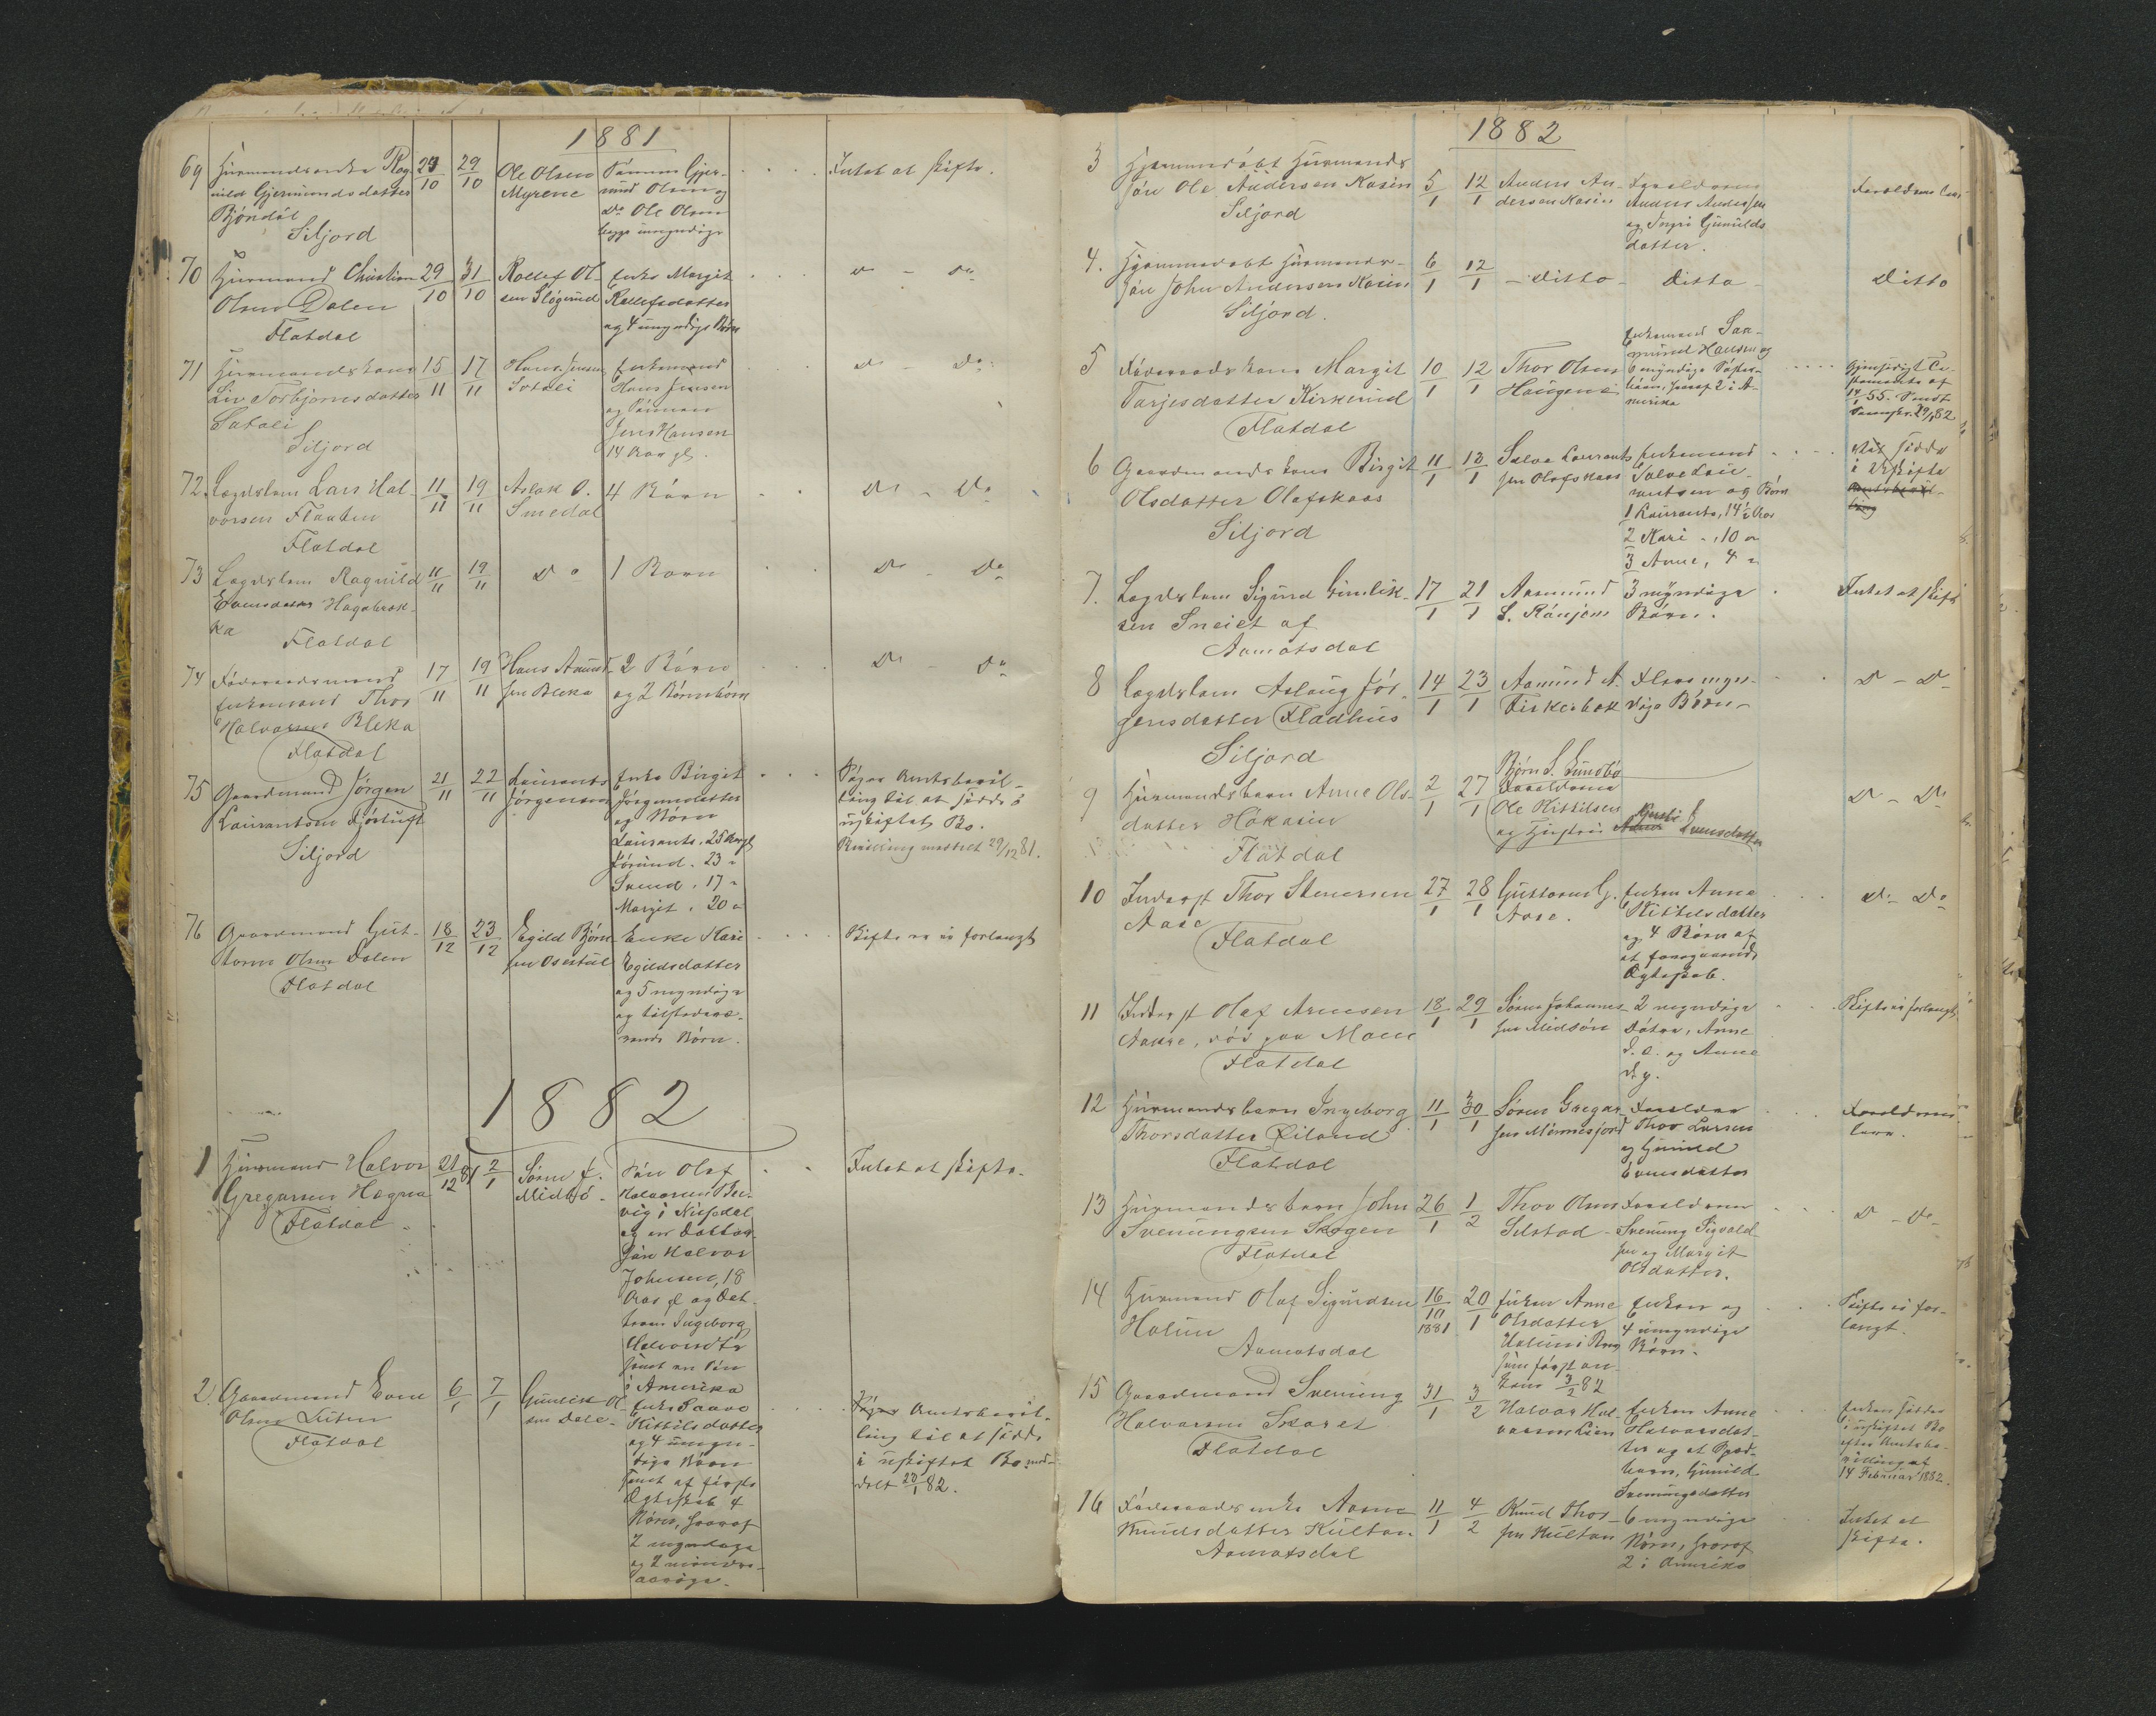 1881
69 Huusmandsenke Rag-
nild Gjermundsdatter
Bjøndal
Siljord
29/10 29/10
Ole Olsen
Myrene
Sønnen Gjer-
mund Olsen og
Do Ole Olsen
begge umyndige
Intet at skifte.
70 Huusmand Christian
Olsen Dalen
Flatdal
29/10 31/10
Rollef Ol-
sen
Enke Margit
Rollefsdatter
og 4 umyndige Børn
Do - Do
71 Huusmandskone
Liv Torbjørnsdatter
Satali
Siljord
15/11 17/11
Hans Jensen
Sotali
Enkemand
Hans Jensen
og Sønnen
Jens Hansen
14 Aar gl.
Do - Do
72 Lægdslem Lars Hal-
vorsen Flaaten
Flatdal
11/11 19/11
Aslak O.
Smedal
4 Børn
Do - Do
73 Lægdslem Ragnild
Evensdatter Hagabrek-
ka
Flatdal
11/11 19/11
Do
1 Barn
Do - Do
74 Føderaadsmand
Enkemand Thor
Halvorsen Bleka
Flatdal
17/11 19/11
Hans Amund-
sen Bleka
2 Børn
og 2 Børnebørn
Do - Do
75 Gaardmand Jørgen
Lauantsen
Siljord
21/11 22/11
Laurants
Jørgensen
Enke Birgit
Jørgensdatter
og Børn
Laurants, 25 Aar gl
Jørund, 23 "
Svend, 17 "
Margit, 20 "
Søger Amtsbevil-
ling til at sidde i
uskiftet Bo.
Bevilling meddelt 29/12 81.
76 Gaardmand Gut-
torm Olsen Dalen
Flatdal
18/12 23/12
Egild Bjørn-
sen Osestul
Enke Kari
Egildsdatter
og 5 myndige
og tilstedevæ-
rende Børn.
Skifte ei forlangt
1882
1 Huusmand Halvor
Gregarsen Hegna
Flatdal
21/12 81 2/1
Søren J.
Midbø
Søn Olaf
Halvorsen
i Nissedal
og en Datter-
søn Halvor
Johnsen, 18
Aar gl og Dat-
teren Ingeborg
Halvorsdtr
samt en Søn
i Amerika
Intet at skifte.
2. Gaardmand Even
Olsen Luten
Flatdal
6/1 7/1
Gunlek Ol-
sen Dale
Enke Paavo
Kittilsdatter
og 4 umyn-
dige Børn
samt af første
Ægteskab 4
Børn, hvoraf
2 myndige
og 2 mindre-
aarige.
Søger Amtsbevil-
ling til at sidde
i uskiftet Bo med-
delt 20/1 82.
1882
3 Hjemmedøbt Huusmands
søn Ole Andersen Kasin
Siljord
5/1 12/1
Anders An-
dersen Kasin
Forældrene
Anders Andersen
og Ingri Gunulds
datter.
Forældrene
4. Hjemmedøbt Huusmands-
søn John Andersen Kasin
Siljord.
6/1 12/1
- Ditto - Ditto -
Ditto
5 Føderaadskone Margit
Tarjesdatter Kirkerud
Flatdal
10/1 12/1
Thor Olsen
Haugene
Enkemand Saa-
mund Hansen og
6 myndige Søsken-
børn, hvoraf 2 i A-
merika
Gjensidigt Te-
stamente af
14/1 55.
6 Gaardmandskone Birgit
Olsdatter Olafskaas
Siljord
11/1 13/1
Salve Laurants
sen Olafskaas
Enkemand
Salve Lau-
rantsen og Børn
1 Laurants, 14½ Aar
2 Kari ", 10 "
3 Anne, 4 "
sidde
i Uskifte
7. Lægdslem Sigurd Gunlek-
sen Sneiet af
Aamotsdal
17/1 21/1
Aasmund
S. Rånjom
3 myndige
Børn.
Intet at skifte
8 Lægdslem Aslaug Jør-
gensdatter Fladhus
Siljord
14/1 23/1
Aamund A.
Fiskerbæk
Flere myn-
dige Børn
Do - Do
9 Huusmandsbarn Anne Ols-
datter Håkasin
Flatdal
2/1 27/1
Bjørn S. Lundbø
Forældrene
Ole Kittilsen
og Hustru Evensdatter
Do - Do
10 Inderst Thor Stenersen
Aase
Flatdal
27/1 28/1
Guttorm G.
Aase.
Enken Anne
Kittilsdatter
og 4 Børn af
et foregaaende
Ægteskab.
Do - Do
11 Inderst Olaf Arnesen
Aakre, død paa Moen
Flatdal
18/1 29/1
Søren Johannes
sen Midbøn
2 myndige
Døtre, Anne
d. æ. og Anne
d. y.
Skifte ei forlangt
12 Huusmandsbarn Ingeborg
Thorsdatter Øiland
Flatdal
11/1 30/1
Søren Gregar-
sen Mannesjord
Forældre
Thor Larsen
og Gunild
Evensdatter
Forældrene
leve.
13 Huusmandsbarn John
Svenungsen Skogen
Flatdal
26/1 1/2
Thor Olsen
Selstad
Forældrene
Svenung Sigvald-
sen og Margit
Olsdatter.
Do - Do
14 Huusmand Olaf Sigurdsen
Halim
Aamotsdal
16/10 1881 20/1
Enken Anne
Olsdatter
som først an-
kom 3/2 82
Enken og
4 umyndige
Børn.
Skifte ei for-
langt.
15 Gaardmand Svenung
Halvorsen Skoret
Flatdal
31/1 3/2
Halvor Hal-
vorsen Lien
Enken Anne
Halvorsdat-
ter og et Spæd-
barn, Gunild
Svenungsdatter
Enken sidder
i uskiftet Bo
efter Amtsbe-
villing af
14 Februar 1882.
16 Føderaadsenke Aasne
Knudsdatter Kultan
Aamotsdal
11/1 4/2
Knud Thor-
sen Kultan
6 myndige
Børn, hvoraf
2 i Amerika
Intet at
skifte.